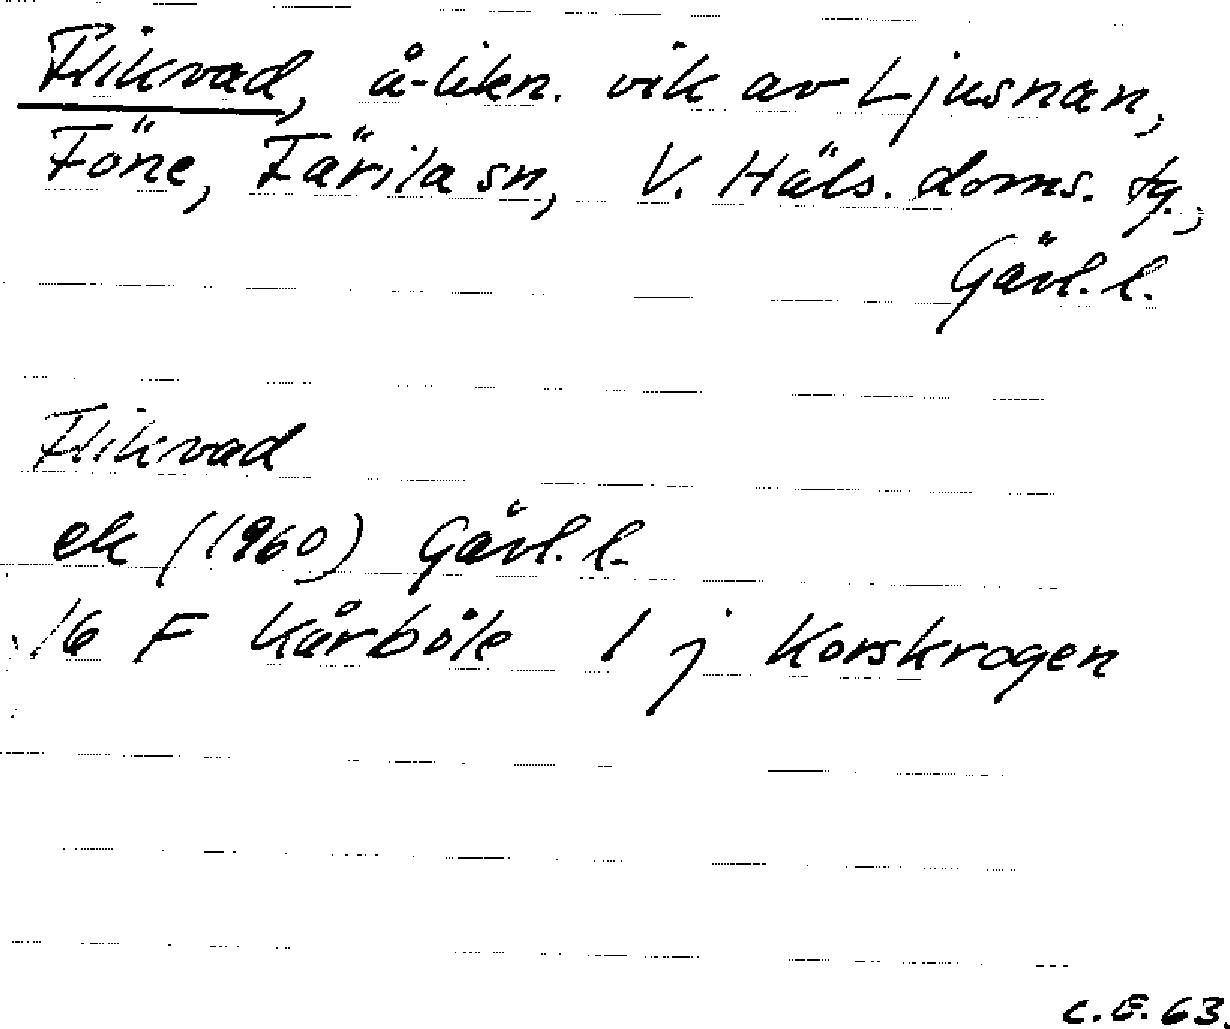 Flikvad, å-likn. vik av Ljusnan,
Föne, Färila sn, V. Häls. doms. tg.,
Gävl. l.
Flikvad
ek (1960) Gävl. l.
16 F Kårböle 1 j Korskrogen
C. E. 63.